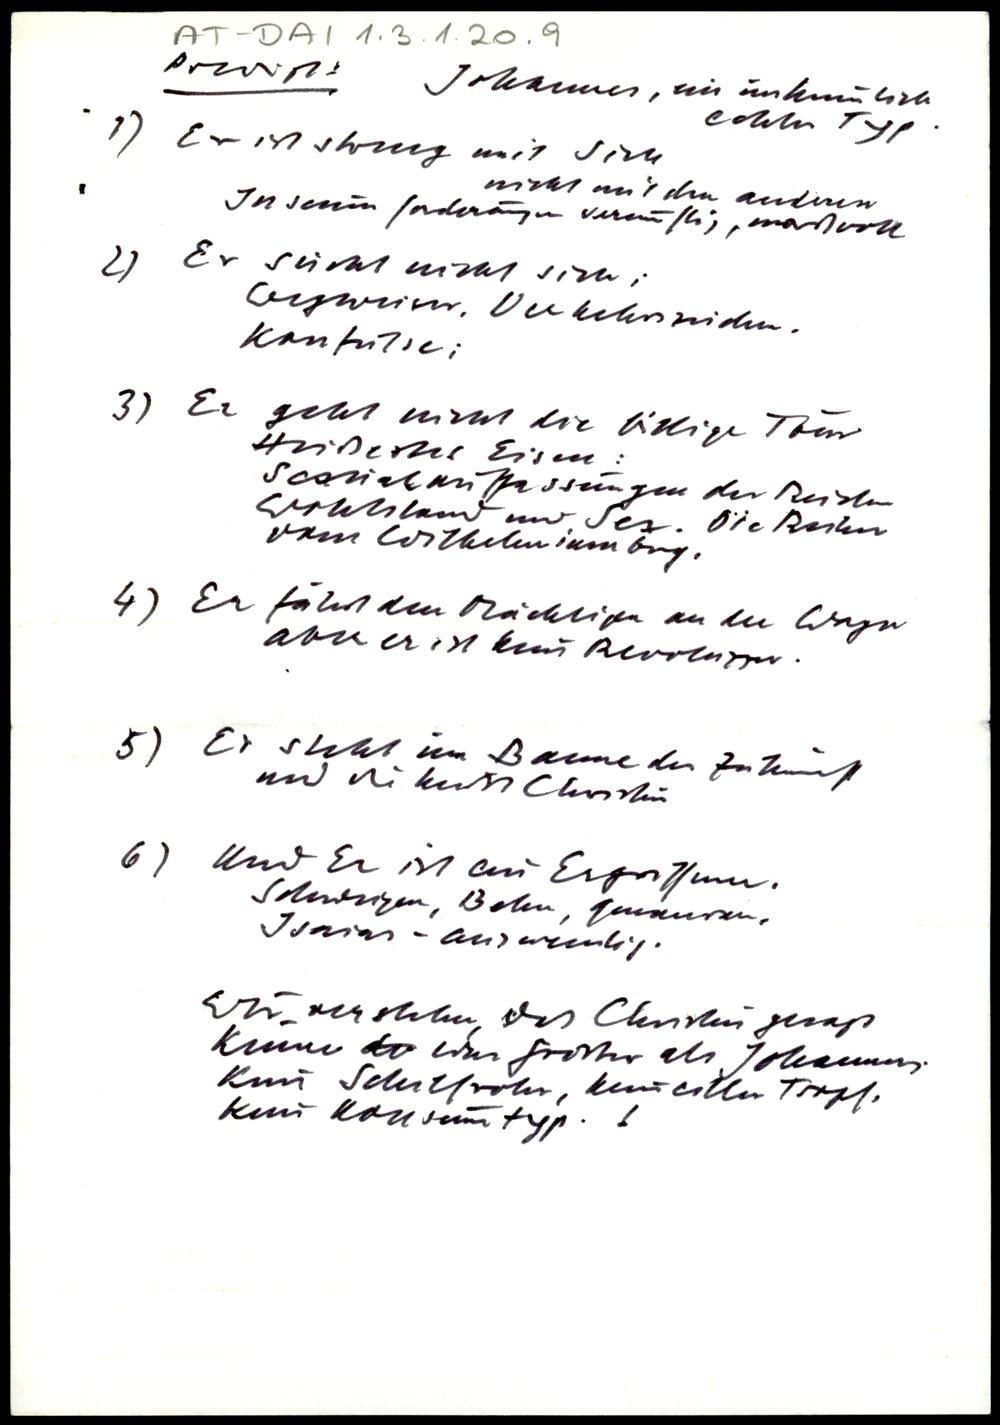 AT-DAI 1.3.1.20.9
Predigt: Johannes, ein unheimlich
echter Typ.
1) Er ist streng mit sich
nicht mit den anderen
In seinen Forderungen vernünftig, maßvoll
2) Er sucht nicht sich;
Wegweiser. Verkehrszeichen.
Kanzel;
3) Er geht nicht die billige Tour
Heißestes Eisen:
Sozialauffassungen der Reichen
Wohlstand und Sex. Die Reichen
vom Wilhelminenberg.
4) Er fährt den Mächtigen an den Wagen
aber er ist kein Revoluzzer.
5) Er steht im Banne der Zukunft
und die heißt Christus
6) Und Er ist ein Ergriffener.
Schweigen, Beten,
Isaias - auswendig.
Wir verstehen, daß Christus gesagt
Keiner war größer als Johannes.
Kein Schilfrohr, kein eitler Tropf.
Kein Konsumtyp. !